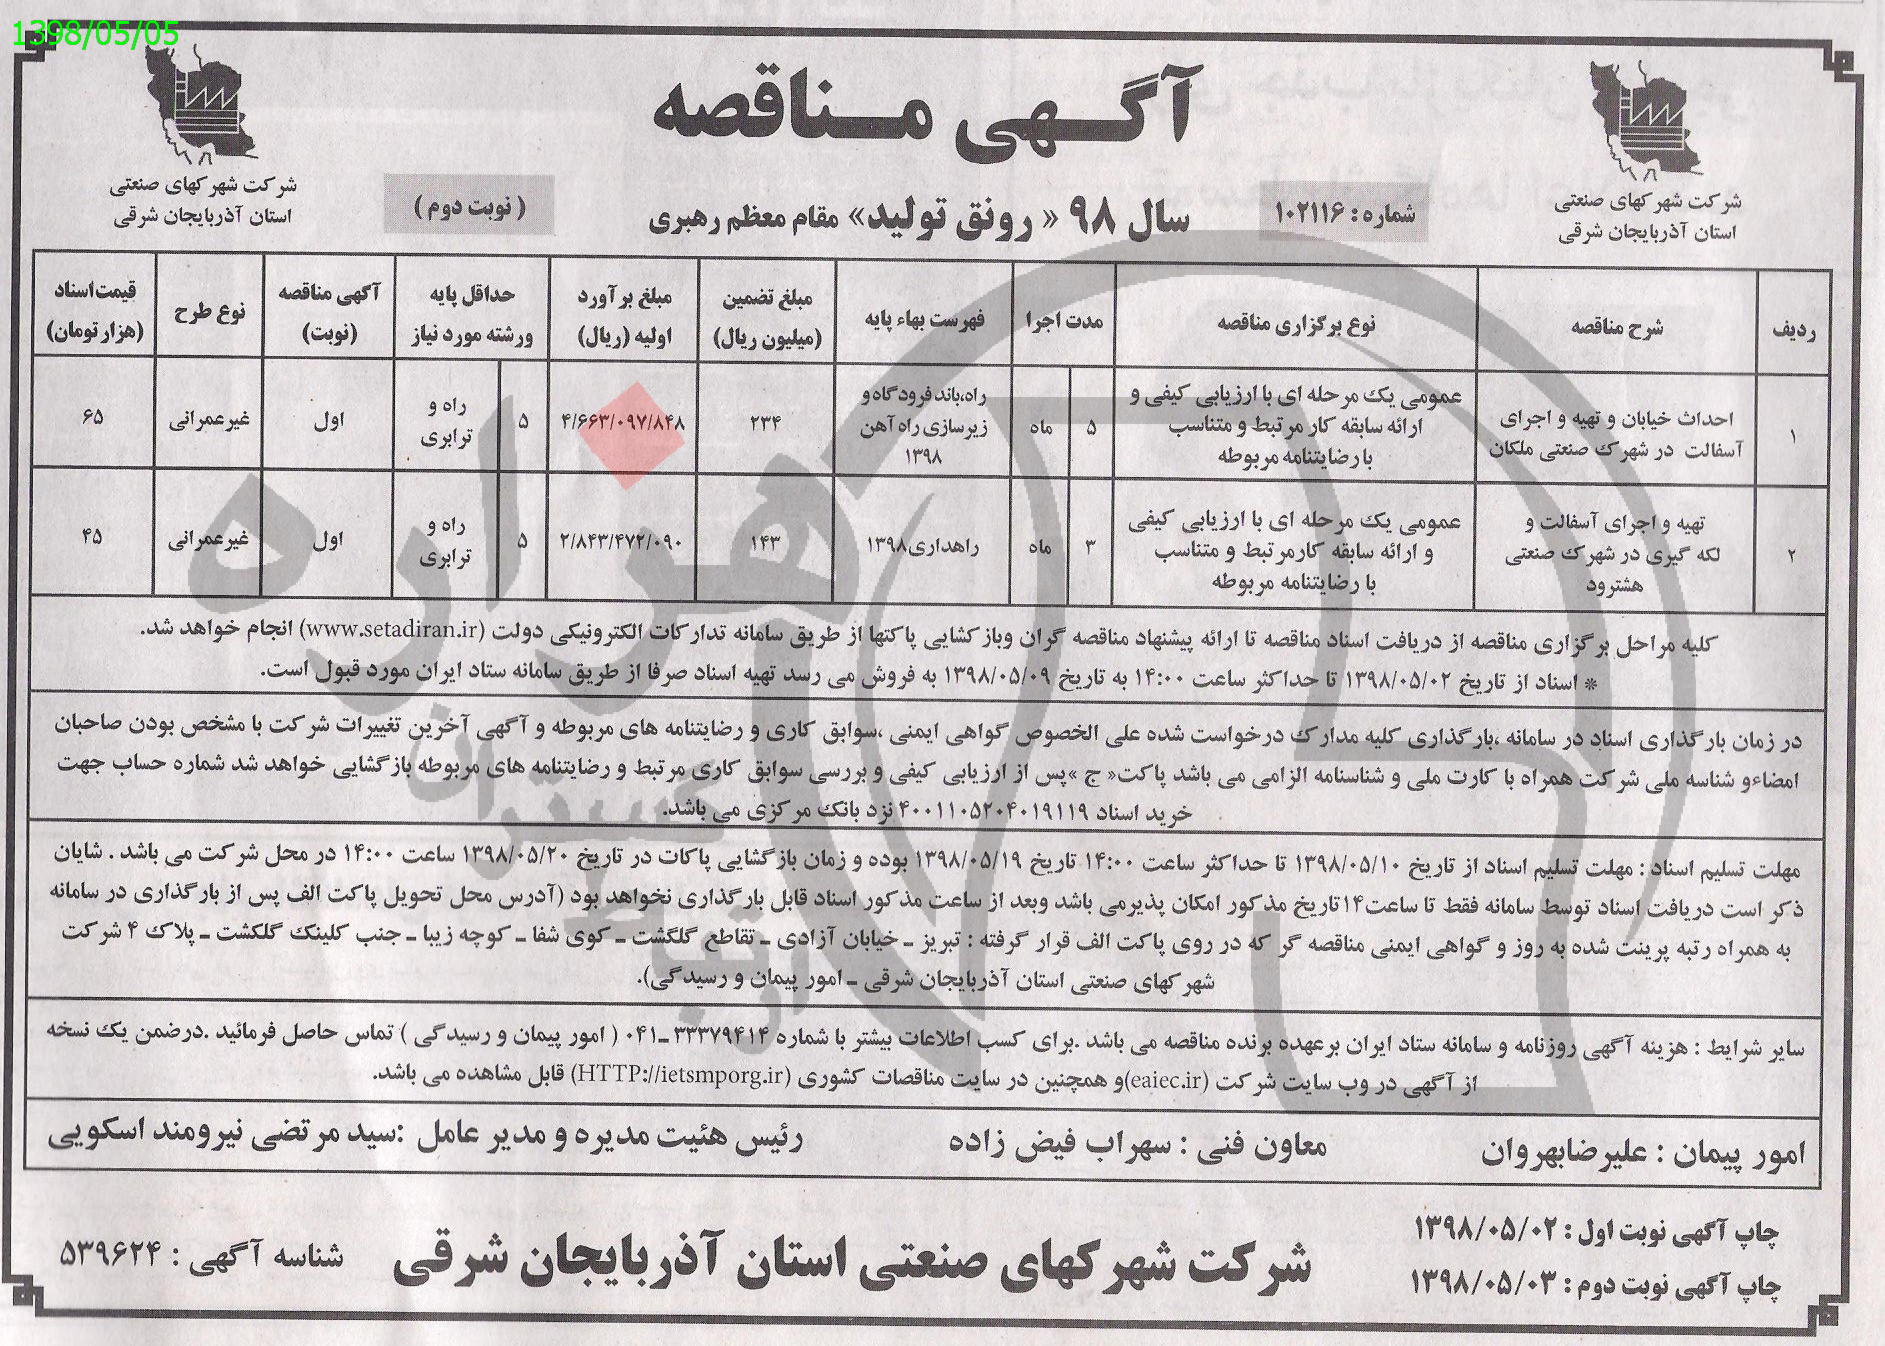 1398/05/05
آگهی مناقصه
شرکت شهرکهای صنعتی
استان آذربایجان شرقی
شماره : ۱۰۲۱۱۶
سال ۹۸ « رونق تولید» مقام معظم رهبری
( نوبت دوم )
شرکت شهرکهای صنعتی
استان آذربایجان شرقی
ردیف
شرح مناقصه
نوع برگزاری مناقصه
مدت اجرا
فهرست بهاء پایه
مبلغ تضمین
(میلیون ریال)
مبلغ برآورد
اولیه (ریال)
حداقل پایه
ورشته مورد نیاز
آگهی مناقصه
(نوبت)
نوع طرح
قیمت اسناد
(هزار تومان)
۱
احداث خیابان و تهیه و اجرای
آسفالت در شهرک صنعتی ملکان
عمومی یک مرحله ای با ارزیابی کیفی و
ارائه سابقه کار مرتبط و متناسب
با رضایتنامه مربوطه
۵
ماه
راه،باند فرودگاه و
زیرسازی راه آهن
۱۳۹۸
۲۳۴
۴/۶۶۳/۰۹۷/۸۴۸
۵
راه و
ترابری
اول
غیرعمرانی
۶۵
۲
تهیه و اجرای آسفالت و
لکه گیری در شهرک صنعتی
هشترود
عمومی یک مرحله ای با ارزیابی کیفی
و ارائه سابقه کارمرتبط و متناسب
با رضایتنامه مربوطه
۳
ماه
راهداری۱۳۹۸
۱۴۳
۲/۸۴۳/۴۷۲/۰۹۰
۵
راه و
ترابری
اول
غیرعمرانی
۴۵
کلیه مراحل برگزاری مناقصه از دریافت اسناد مناقصه تا ارائه پیشنهاد مناقصه گران وبازکشایی پاکتها از طریق سامانه تدارکات الکترونیکی دولت (www.setadiran.ir) انجام خواهد شد.
* اسناد از تاریخ ۱۳۹۸/۰۵/۰۲ تا حداکثر ساعت ۱۴:۰۰ به تاریخ ۱۳۹۸/۰۵/۰۹ به فروش می رسد تهیه اسناد صرفا از طریق سامانه ستاد ایران مورد قبول است.
در زمان بارگذاری اسناد در سامانه ،بارگذاری کلیه مدارک درخواست شده علی الخصوص گواهی ایمنی ،سوابق کاری و رضایتنامه های مربوطه و آگهی آخرین تغییرات شرکت با مشخص بودن صاحبان
امضاءو شناسه ملی شرکت همراه با کارت ملی و شناسنامه الزامی می باشد پاکت« ج »پس از ارزیابی کیفی و بررسی سوابق کاری مرتبط و رضایتنامه های مربوطه بازگشایی خواهد شد شماره حساب جهت
خرید اسناد ۴۰۰۱۱۰۵۲۰۴۰۱۹۱۱۹ نزد بانک مرکزی می باشد.
مهلت تسلیم اسناد : مهلت تسلیم اسناد از تاریخ ۱۳۹۸/۰۵/۱۰ تا حداکثر ساعت ۱۴:۰۰ تاریخ ۱۳۹۸/۰۵/۱۹ بوده و زمان بازگشایی پاکات در تاریخ ۱۳۹۸/۰۵/۲۰ ساعت ۱۴:۰۰ در محل شرکت می باشد . شایان
ذکر است دریافت اسناد توسط سامانه فقط تا ساعت۱۴تاریخ مذکور امکان پذیرمی باشد وبعد از ساعت مذکور اسناد قابل بارگذاری نخواهد بود (آدرس محل تحویل پاکت الف پس از بارگذاری در سامانه
به همراه رتبه پرینت شده به روز و گواهی ایمنی مناقصه گر که در روی پاکت الف قرار گرفته : تبریز ـ خیابان آزادی ـ تقاطع گلگشت ـ کوی شفا ـ کوچه زیبا ـ جنب کلینک گلکشت ـ پلاک ۴ شرکت
شهرکهای صنعتی استان آذربایجان شرقی ـ امور پیمان و رسیدگی).
سایر شرایط : هزینه آگهی روزنامه و سامانه ستاد ایران برعهده برنده مناقصه می باشد .برای کسب اطلاعات بیشتر با شماره ۳۳۳۷۹۴۱۴ـ۰۴۱ ( امور پیمان و رسیدگی ) تماس حاصل فرمائید .درضمن یک نسخه
از آگهی در وب سایت شرکت (eaiec.ir)و همچنین در سایت مناقصات کشوری (HTTP://ietsmporg.ir) قابل مشاهده می باشد.
امور پیمان : علیرضابهروان
معاون فنی : سهراب فیض زاده
رئیس هئیت مدیره و مدیر عامل :سید مرتضی نیرومند اسکویی
چاپ آگهی نوبت اول : ۱۳۹۸/۰۵/۰۲
چاپ آگهی نوبت دوم : ۱۳۹۸/۰۵/۰۳
شرکت شهرکهای صنعتی استان آذربایجان شرقی
شناسه آگهی : ۵۳۹۶۲۴